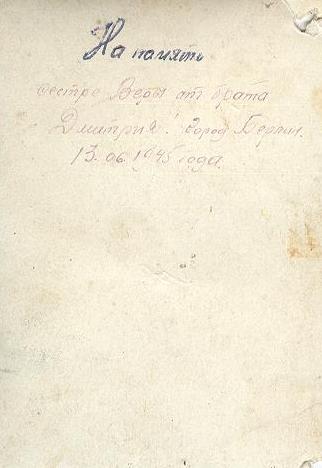 На память
сестре Веры от брата
Дмитрия! город Берлин.
13. 06. 1945 года.